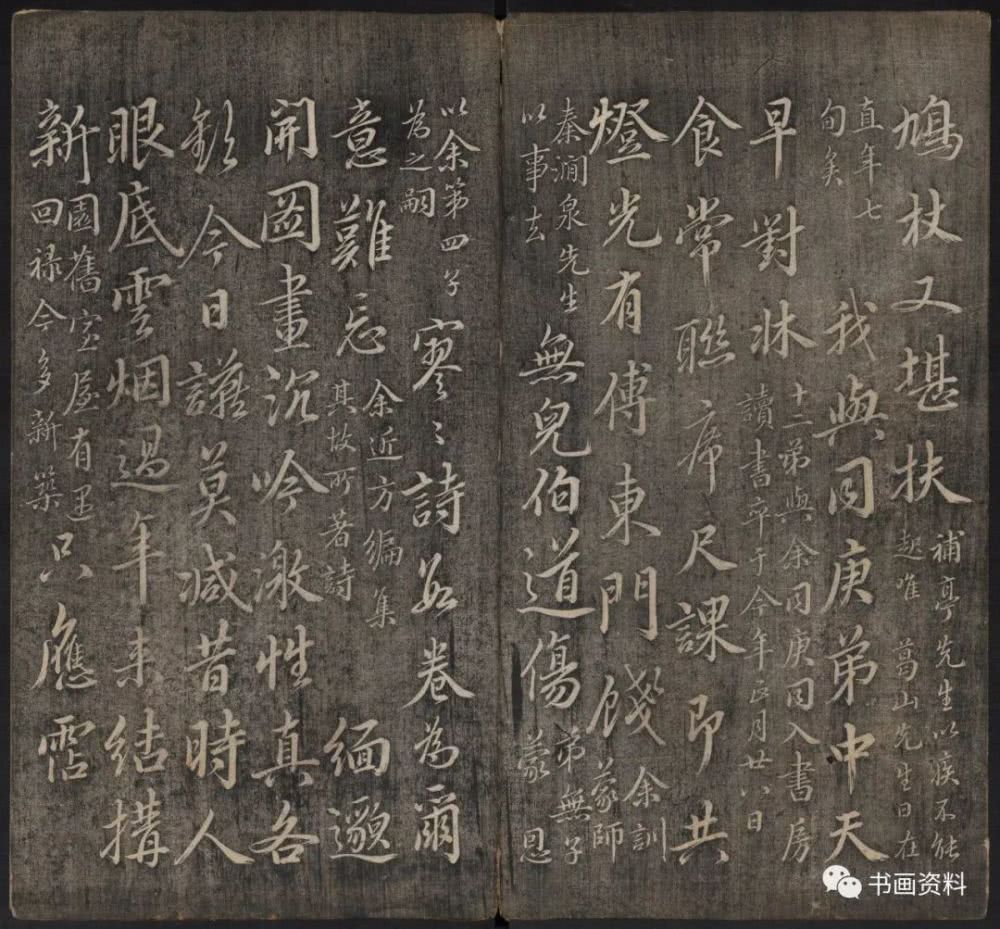 鳩杖又堪扶補亭先生以疾不能
唯葛山先生日在
直年七
旬矣我與同庚弟中天
早對牀十二弟與余同庚同入書房
讀書卒于今年正月廿八日
食常聯席尺課即共
燈光有傅東門餞余訓
蒙師
秦澗泉先生
以事去無兒伯道傷弟無子
蒙恩
以余第四子
為之嗣寥〻詩數卷為爾
意難忘余近方編集
其故所著詩緬邈
開圖畫沉吟激性真各
今日讌莫減昔時人
眼底雲烟過年来結搆
新園舊室屋有遇
回禄今多新築只應霑
书画资料